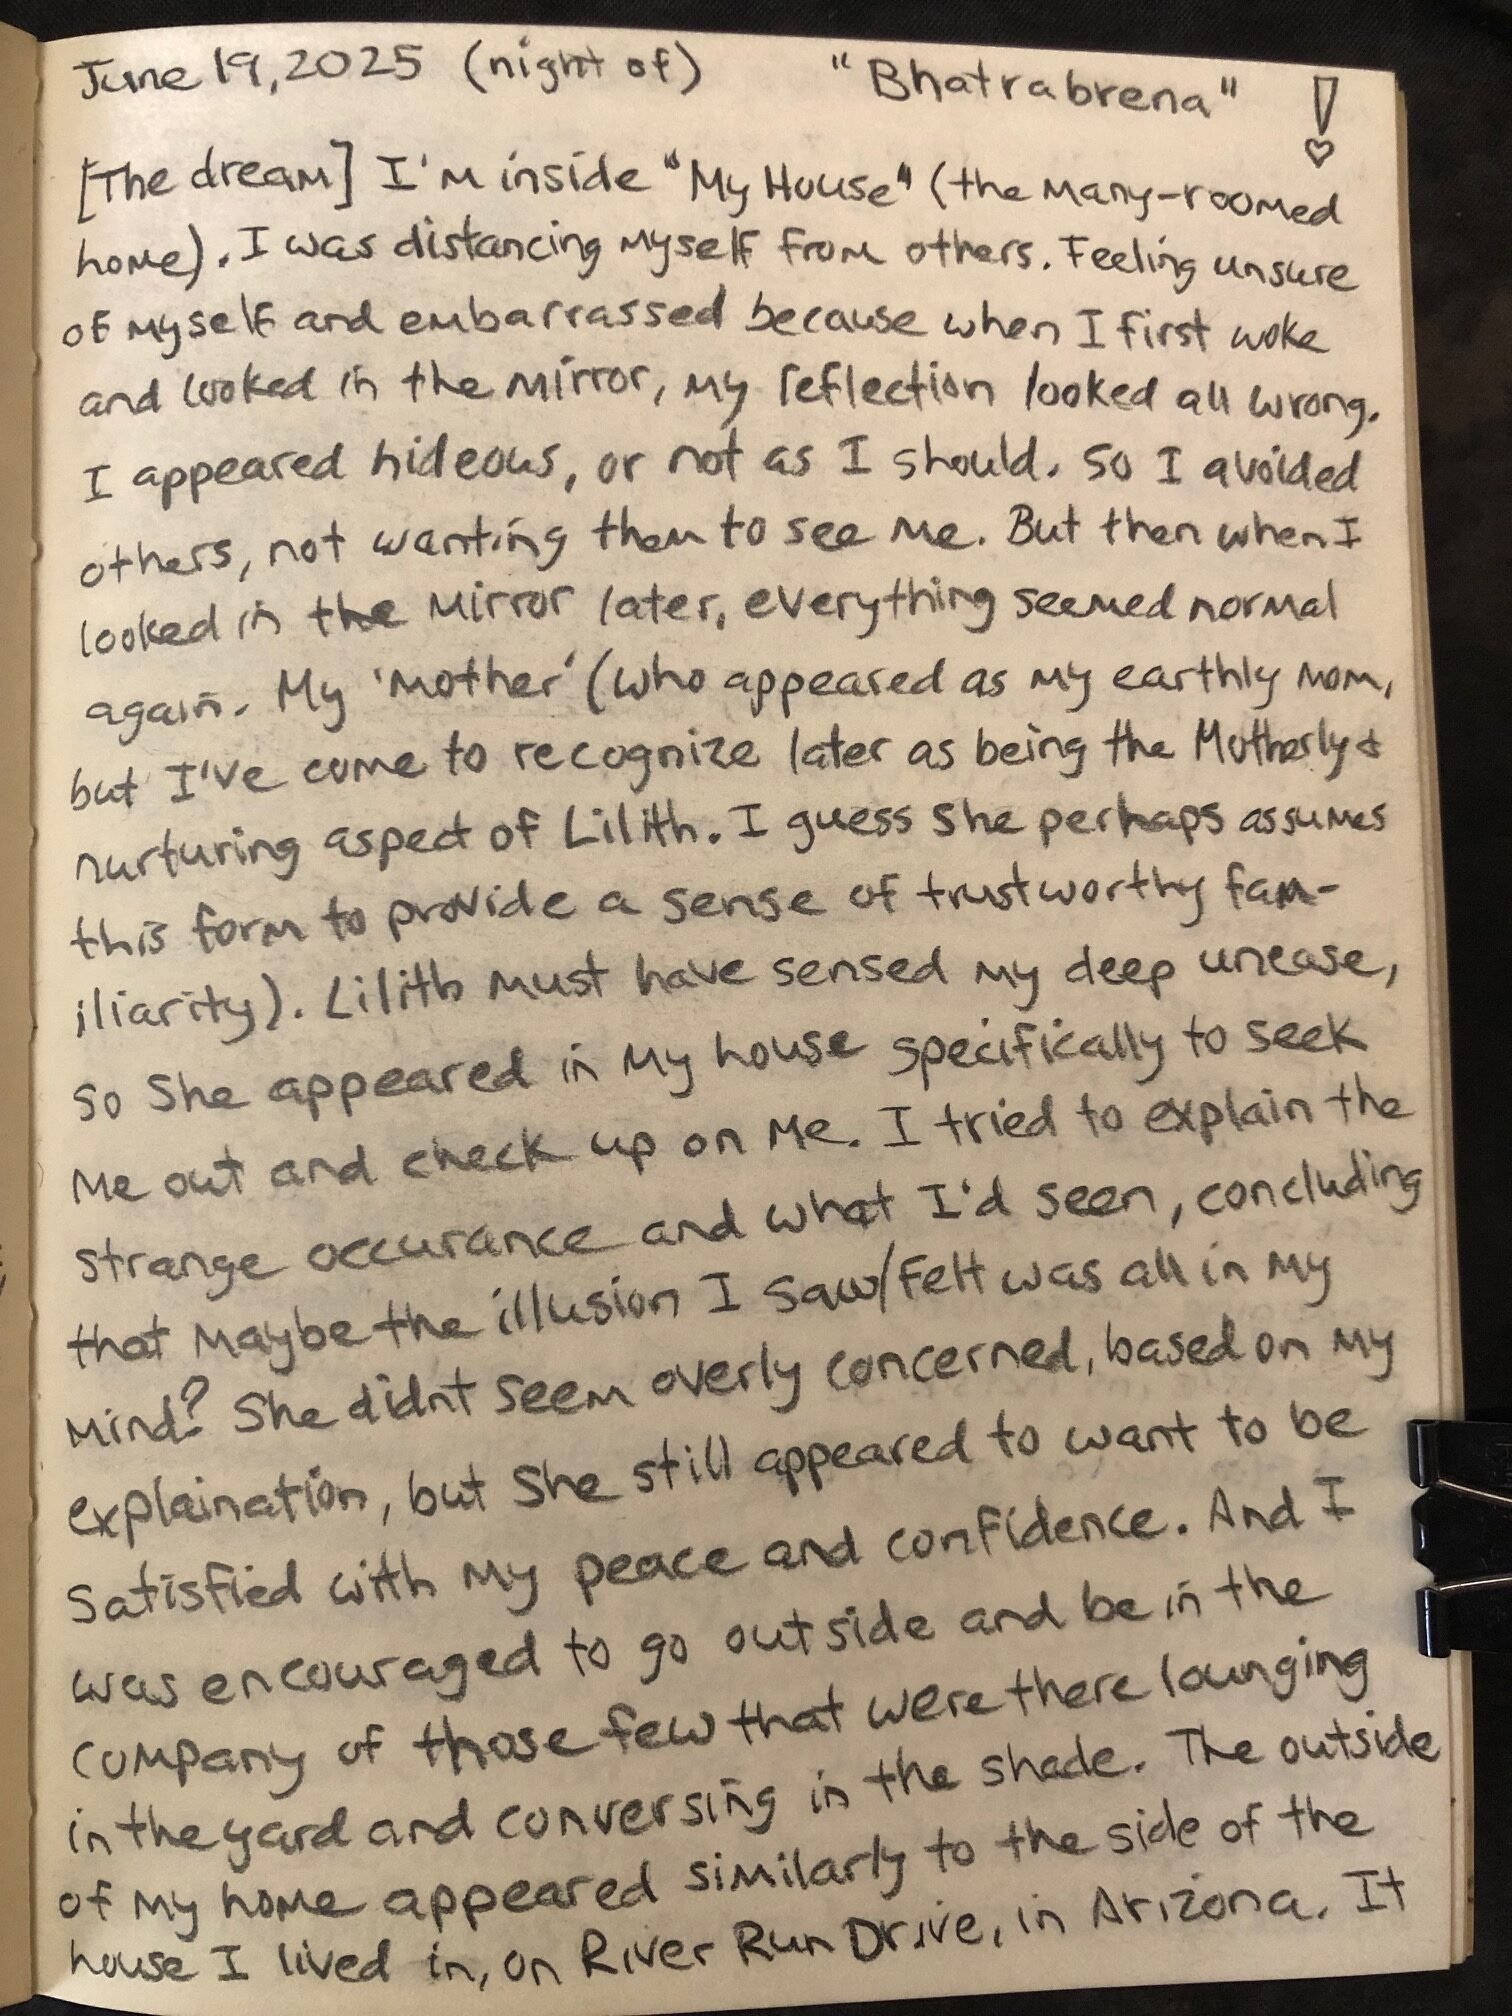 June 19, 2025 (night of) "Bhatrabrena" !
[The dream] I'm inside "My House" (the many-roomed
home). I was distancing myself from others. Feeling unsure
of myself and embarrassed because when I first woke
and looked in the mirror, my reflection looked all wrong.
I appeared hideous, or not as I should. So I avoided
others, not wanting them to see me. But then when I
looked in the mirror later, everything seemed normal
again. My 'mother' (who appeared as my earthly mom,
but I've come to recognize later as being the Motherly &
nurturing aspect of Lilith. I guess She perhaps assumes
this form to provide a sense of trustworthy fam-
iliarity). Lilith must have sensed my deep unease,
so She appeared in my house specifically to seek
me out and check up on me. I tried to explain the
strange occurance and what I'd seen, concluding
that maybe the illusion I saw/felt was all in my
mind? She didnt seem overly concerned, based on my
explaination, but She still appeared to want to be
satisfied with my peace and confidence. And I
was encouraged to go outside and be in the
company of those few that were there lounging
in the yard and conversing in the shade. The outside
of my home appeared similarly to the side of the
house I lived in, on River Run Drive, in Arizona. It